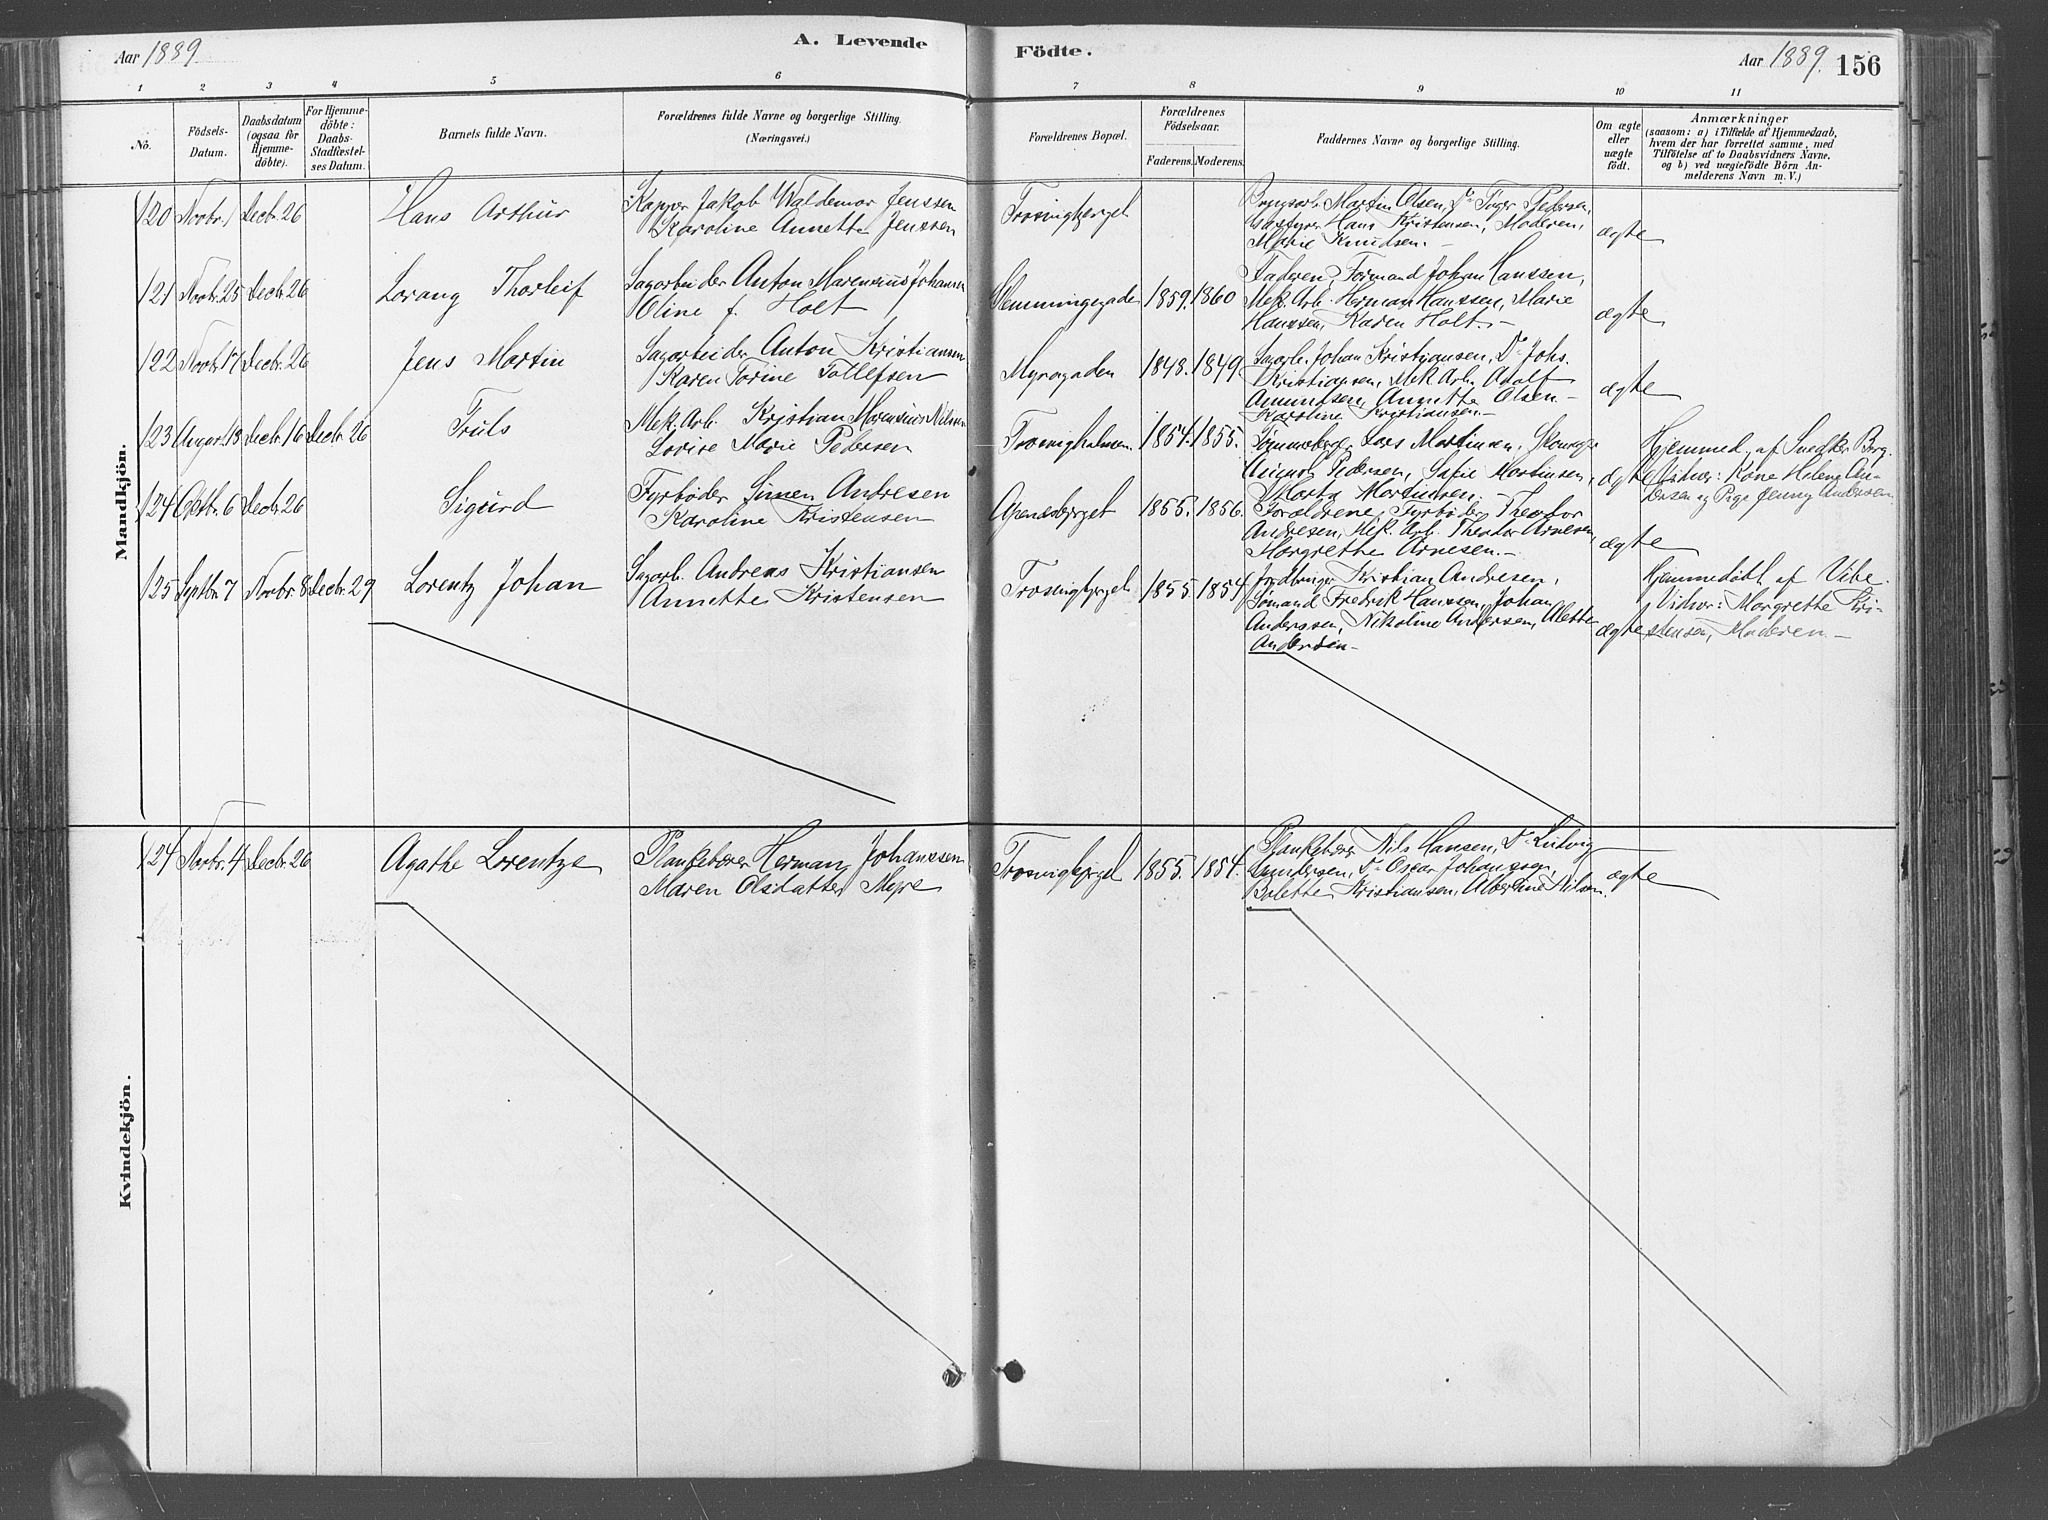 Aar 1889
A. Levende
Födte.
Aar 1889.
156
1 2 3 4 5 6 7 8 9 10 11
No.
Födsels-
Datum.
Daabsdatum
(ogsaa for
Hjemme-
döbte).
For Hjemme-
döbte:
Daabs-
Stadfæstel-
ses Datum.
Barnets fulde Navn.
Forældrenes fulde Navne og borgerlige Stilling.
(Næringsvei.)
Forældrenes Bopæl.
Forældrenes
Födselsaar.
Faderens. Moderens.
Faddernes Navne og borgerlige Stilling.
Om ægte
eller
uægte
födt.
Anmærkninger
(saasom: a) i Tilfælde af Hjemmedaab,
hvem der har forrettet samme, med
Tilföielse af to Daabsvidners Navne.
og b) ved uægtefödte Börn An-
melderens Navn m. V.)
Mandkjön.
120 Novbr. 1 Decbr. 26 Hans Arthur
Kapper Jakob Waldemar Jenssen
Karoline Annette Jenssen
Trosvigbjerget
Martin Olsen, Do Pedersen,
Hans Kristensen, Moderen,
Marie Knudsen.-
ægte
121 Novbr. 25 Decbr. 26 Lorang Thorleif
Sagarbeider Anton Marensius Johansen
Oline f. Holt
1859. 1860
Faderen, Formand Johan Hanssen,
Mek. Arb. Herman Hanssen, Marie
Hanssen, Karen Holt.-
ægte
122 Novbr. 17 Decbr. 26 Jens Martin
Sagarbeider Anton Kristiansen
Karen Torine Tollefsen
Myragaden
1848. 1849
Sagarb. Johan Kristiansen, Do Johs.
Kristiansen, Mek Arb. Adolf
Amundsen, Annette Olsen-
Karoline Kristiansen.-
ægte
123 August 18 Decbr. 16 Decbr. 26 Truls
Mek. Arb. Kristian Marensius Nilsen
Lovise Marie Pedersen
Trosvigholmen.
1854. 1855.
Lars Martinsen,
Pedersen, Sofie Martinsen,
Marta Martinsen.
ægte
Hjemmed. af Snedker Berg.
Vidner: Kone Helene An-
dersen og Pige Jenny Andersen
124 Octbr. 6 Decbr. 26 Sigurd
Fyrbøder Simen Andresen
Karoline Kristensen
Apenæsbjerget
1855. 1856.
Forældrene, Fyrbøder Theodor
Andresen, Mek. Arb. Theodor Arnesen,
Margrethe Arnesen.-
ægte
125 Septbr. 7 Novbr. 8 Decbr. 29 Lorentz Johan
Sagarb. Andreas Kristiansen
Annette Kristensen
Trosvigbjerget
1855. 1854
Jordbruger Kristian Andresen,
Sømand Fredrik Hanssen, Johan
Anderssen, Nikoline Andersen, Alette
Andersen-
ægte
Hjemmedøbt af Vibe.
Vidner: Margrethe Kri-
stensen, Moderen.-
Kvindekjön.
124 Novbr. 4 Decbr. 26 Agathe Lorentze
Plankebærer Herman Johanssen
Maren Olsdatter Myre
Trosvigbjerget
1855. 1854.
Plankebærer Nils Hansen, Do Ludvig
Gundersen, Do Oscar Johanssen,
Bolette Kristiansen, Albertine Nilsen.
ægte